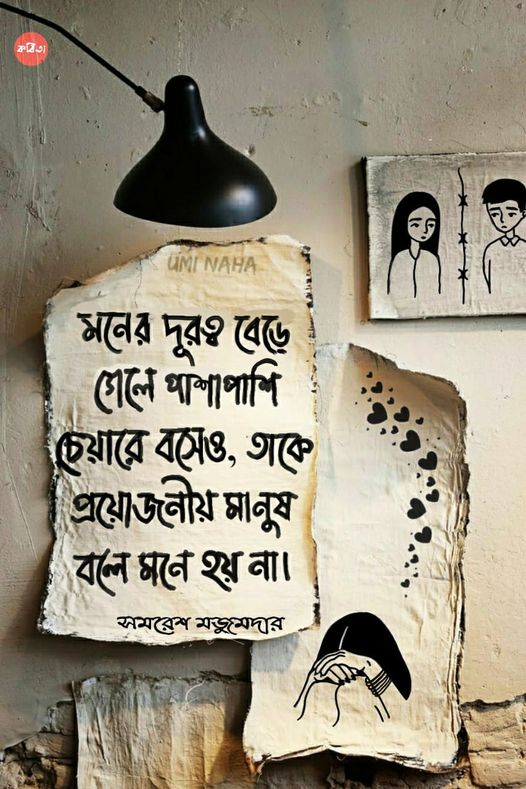 কবিতা
UMI NAHA
মনের দূরত্ব বেড়ে
গেলে পাশাপাশি
চেয়ারে বসেও, তাকে
প্রয়োজনীয় মানুষ
বলে মনে হয় না।
সমরেশ মজুমদার